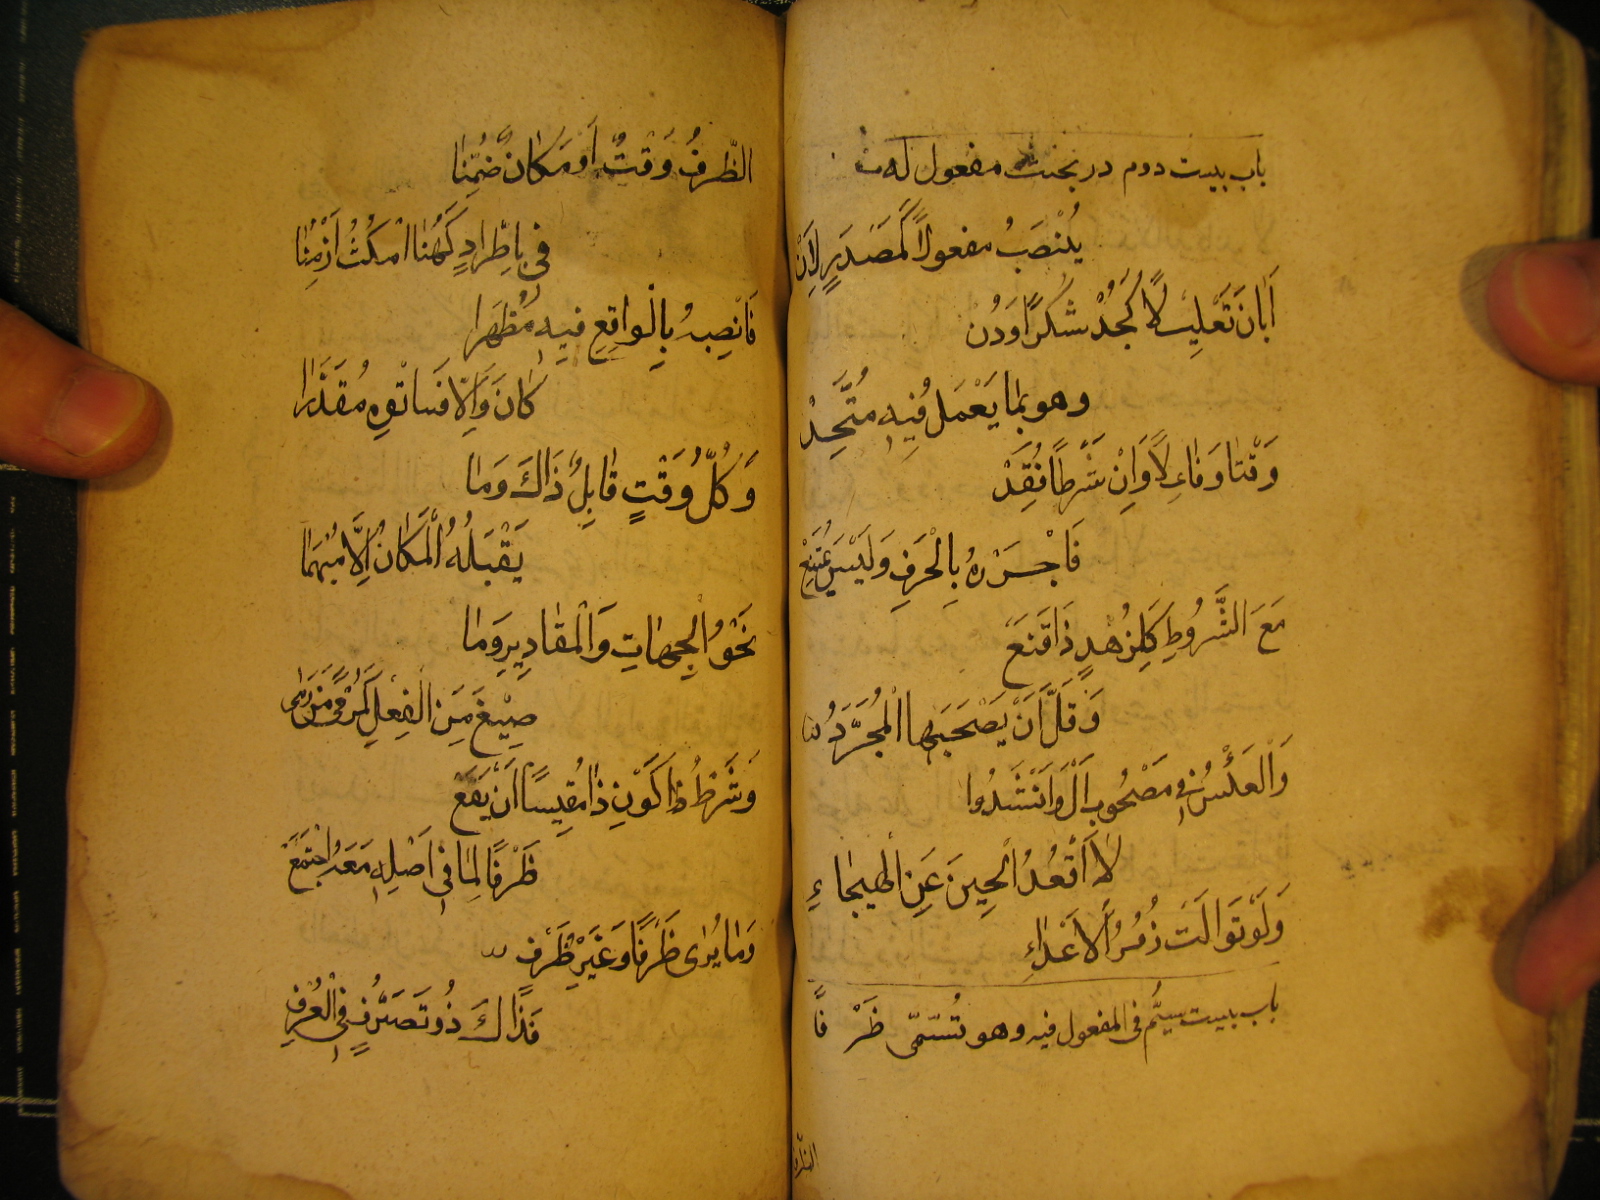 باب بیست دوم در بحث مفعول له
يُنْصَبُ مفعولاً كَمَصْدَرٍ لِاَنْ
اَبَانَ تَعْلِيلًا كَجُدْ شُكْرًا وَدِنْ
وهو بما يَعْمَل فيهِ مُتَّحِدْ
وَقْتا وَفاعِلاً وَاِنْ شَرْطًا فُقِدْ
فَاجْرُرْهُ بِالْحَرْفِ وَلَيْسَ يَمْتَنِعْ
مَعَ الشُّرُوطِ كَلِزُهْدٍ ذَا قَنَعَ
وَقَلَّ اَنْ يَصْحَبَها الْمُجَرَّدُ
وَالْعَكْسُ فی مَصْحُوبِ اَلْ وَاَنْشَدُوا
لَا اَقْعُدُ الْجبنَ عَنِ الْهَيجاءِ
وَلَوْ تَوَالَت زُمَرُ الْاَعْداءِ
باب بیست سیّم فی المفعول فيه وهو تُسَمّی ظَرْفًا
الظّرف
الظّرفُ وَقْتٌ اَو مَكانٌ ضُمِّنا
فی بِاطِّرادٍ كَهُنا امْكُثْ اَزْمِنا
فَانْصِبهُ بِالْواقِعِ فيهِ مُظْهَرا
كانَ وَاِلّا فَانْوِهِ مُقَدَّرا
وَكُلُّ وَقْتٍ قابِلٌ ذَاكَ وَما
يَقْبَلُهُ الْمَكانُ اِلَّا مُبْهَما
نَحْوُ الْجِهاتِ وَالْمَقادِيرِ وَما
صِيْغَ مِنَ الْفِعْلِ كَمَرْمًى مِنْ رَمی
وَشَرْطُ ذا كَوْنِ ذا مُقِيسًا اَنْ يَقَعْ
ظَرْفًا لِما فی اَصْلِهِ مَعَهُ اجْتَمَعْ
وَما يُرى ظَرْفًا وَغَيْرَ ظَرْفِ
فَذَاكَ ذُو تَصَرُّفٍ فی الْعُرْفِ